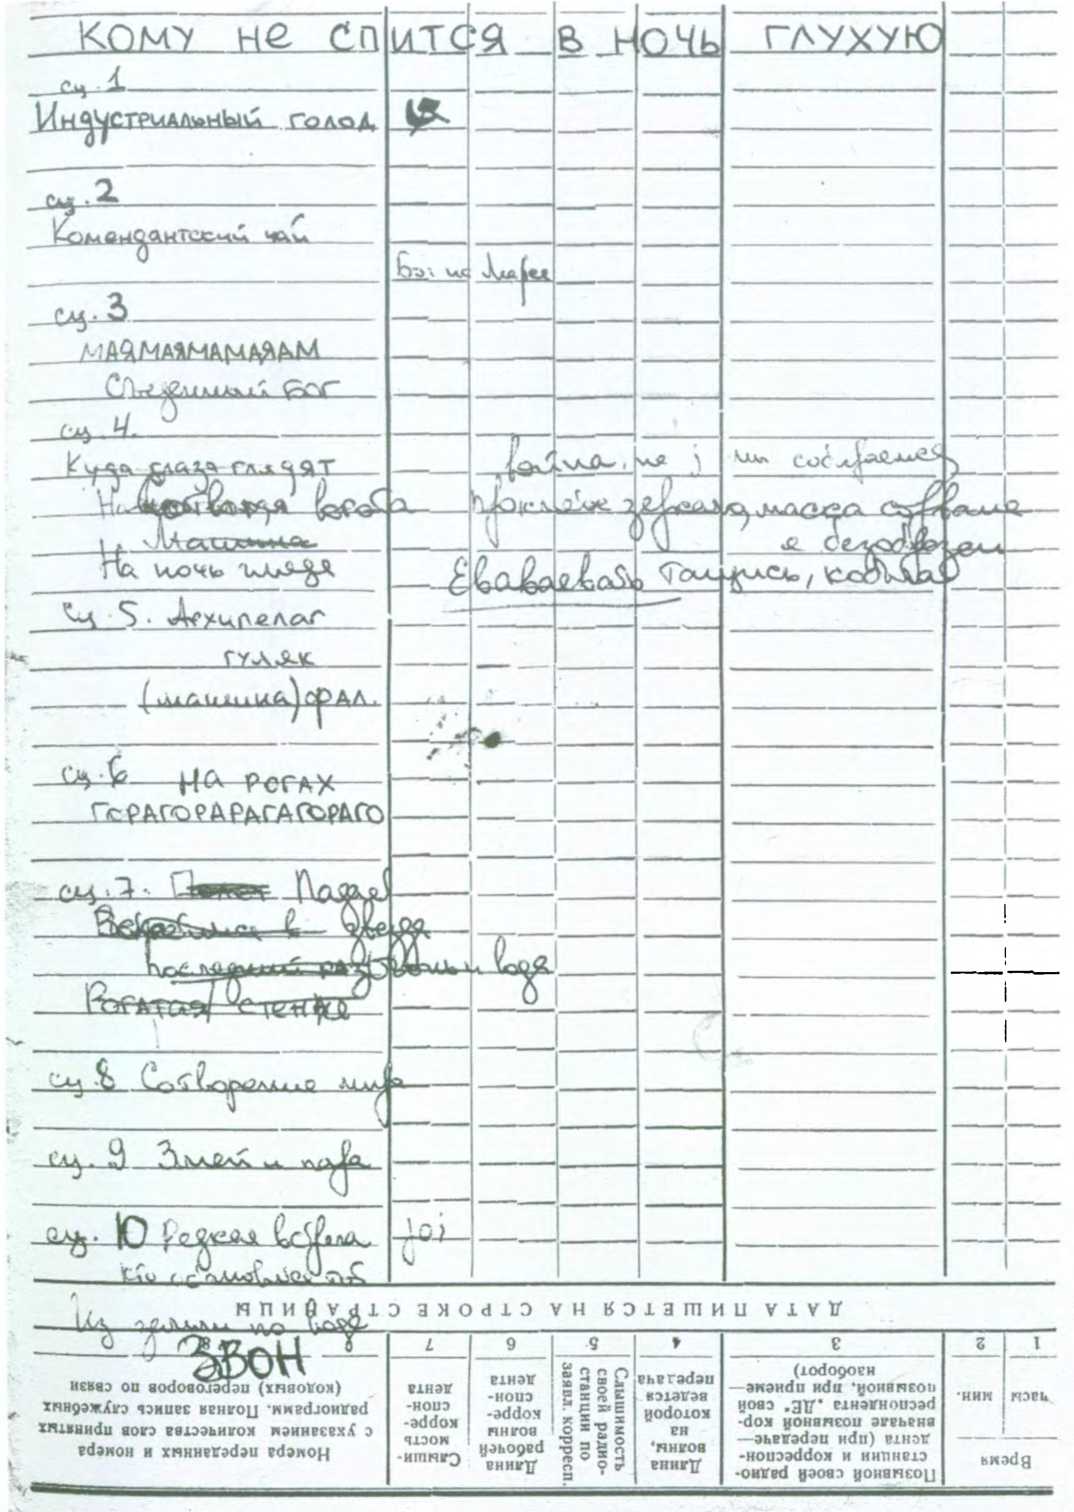 КОМУ НЕ СПИТСЯ В НОЧЬ ГЛУХУЮ
сц. 1
Индустриальный голод
сц. 2
Комендантский чай
сц. 3
МАЯМАЯМАМАЯАМ
Съеденный Бог
сц. 4.
Куда глаза глядят
война, не
На ворота зеркала, масса
Машина
я безобразен
На ночь глядя Еваваевать Тащись, кобыла
сц. 5. Архипелаг
гуляк
(машина) фал.
сц. 6 НА РОГАХ
ГОРАГОРАРАГАГОРАГО
сц. 7.
звезда
последний раз воды
Рогатая стенка
сц. 8 Сотворение мира
сц. 9 Змей и пара
сц. 10 Редкая встреча joj
кто
Из земли по воде
ЗВОН
ДАТА ПИШЕТСЯ НА СТРОКЕ СТРАНИЦЫ
1 2 3 4 5 6 7 8
Время
часы
мин.
Позывной своей радио-
станции и корреспон-
дента (при передаче—
вначале позывной кор-
респондента „ДЕ“ свой
позывной, при приеме—
наоборот)
Длина
волны,
на
которой
ведется
передача
Слышимость
своей радио-
станции по
заявл. корресп.
Длина
рабочей
волны
корре-
спон-
дента
Слыши-
мость
корре-
спон-
дента
Номера переданных и номера
с указанием количества слов принятых
радиограмм. Полная запись служебных
(кодовых) переговоров по связи